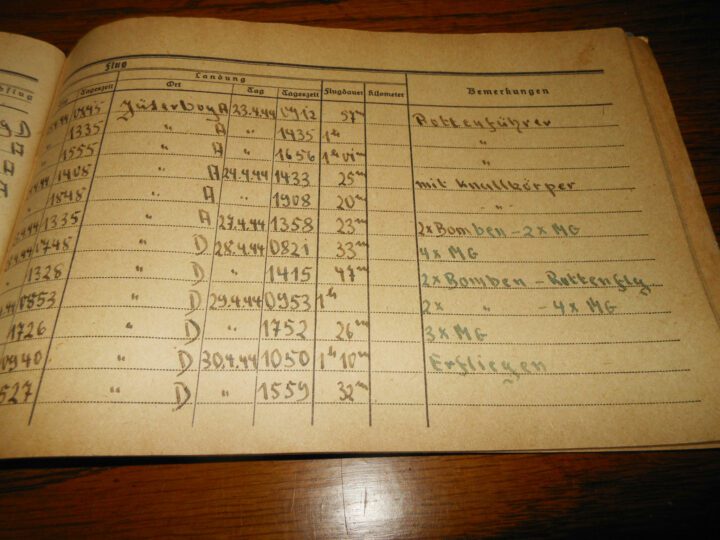 Flug
Landung
Tageszeit Ort Tag Tageszeit Flugdauer Kilometer Bemerkungen
0845 Jüterbog A 23.4.44 0912 57m Rottenführer
1335 " A " 1435 1h "
1555 " A " 1656 1h 01m "
1408 A 24.4.44 1433 25m mit Knallkörper
1848 " A " 1908 20m " "
1335 " A 27.4.44 1358 23m 2x Bomben - 2x MG
0748 " D 28.4.44 0821 33m 4x MG
1328 " D " 1415 47m 2x Bomben - Rottenflg.
0853 D 29.4.44 0953 1h 2x " - 4x MG
1726 " D " 1752 26m 3x MG
0940 " D 30.4.44 1050 1h 10m Erfliegen
527 " D " 1559 32m